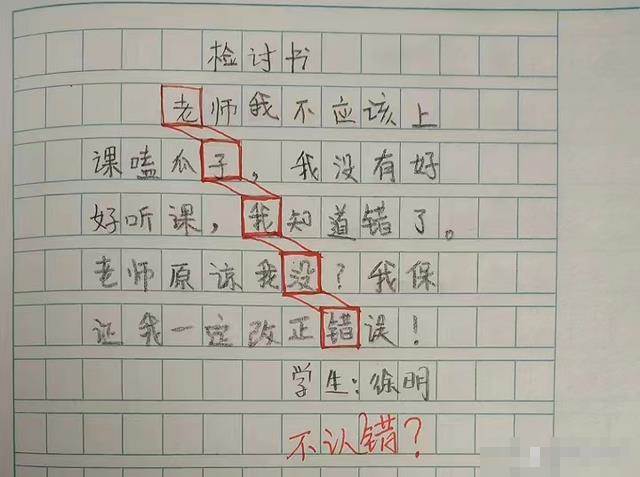 检讨书
老师我不应该上
课嗑瓜子，我没有好
好听课，我知道错了。
老师原谅我没？我保
证我一定改正错误！
学生：徐明
不认错？